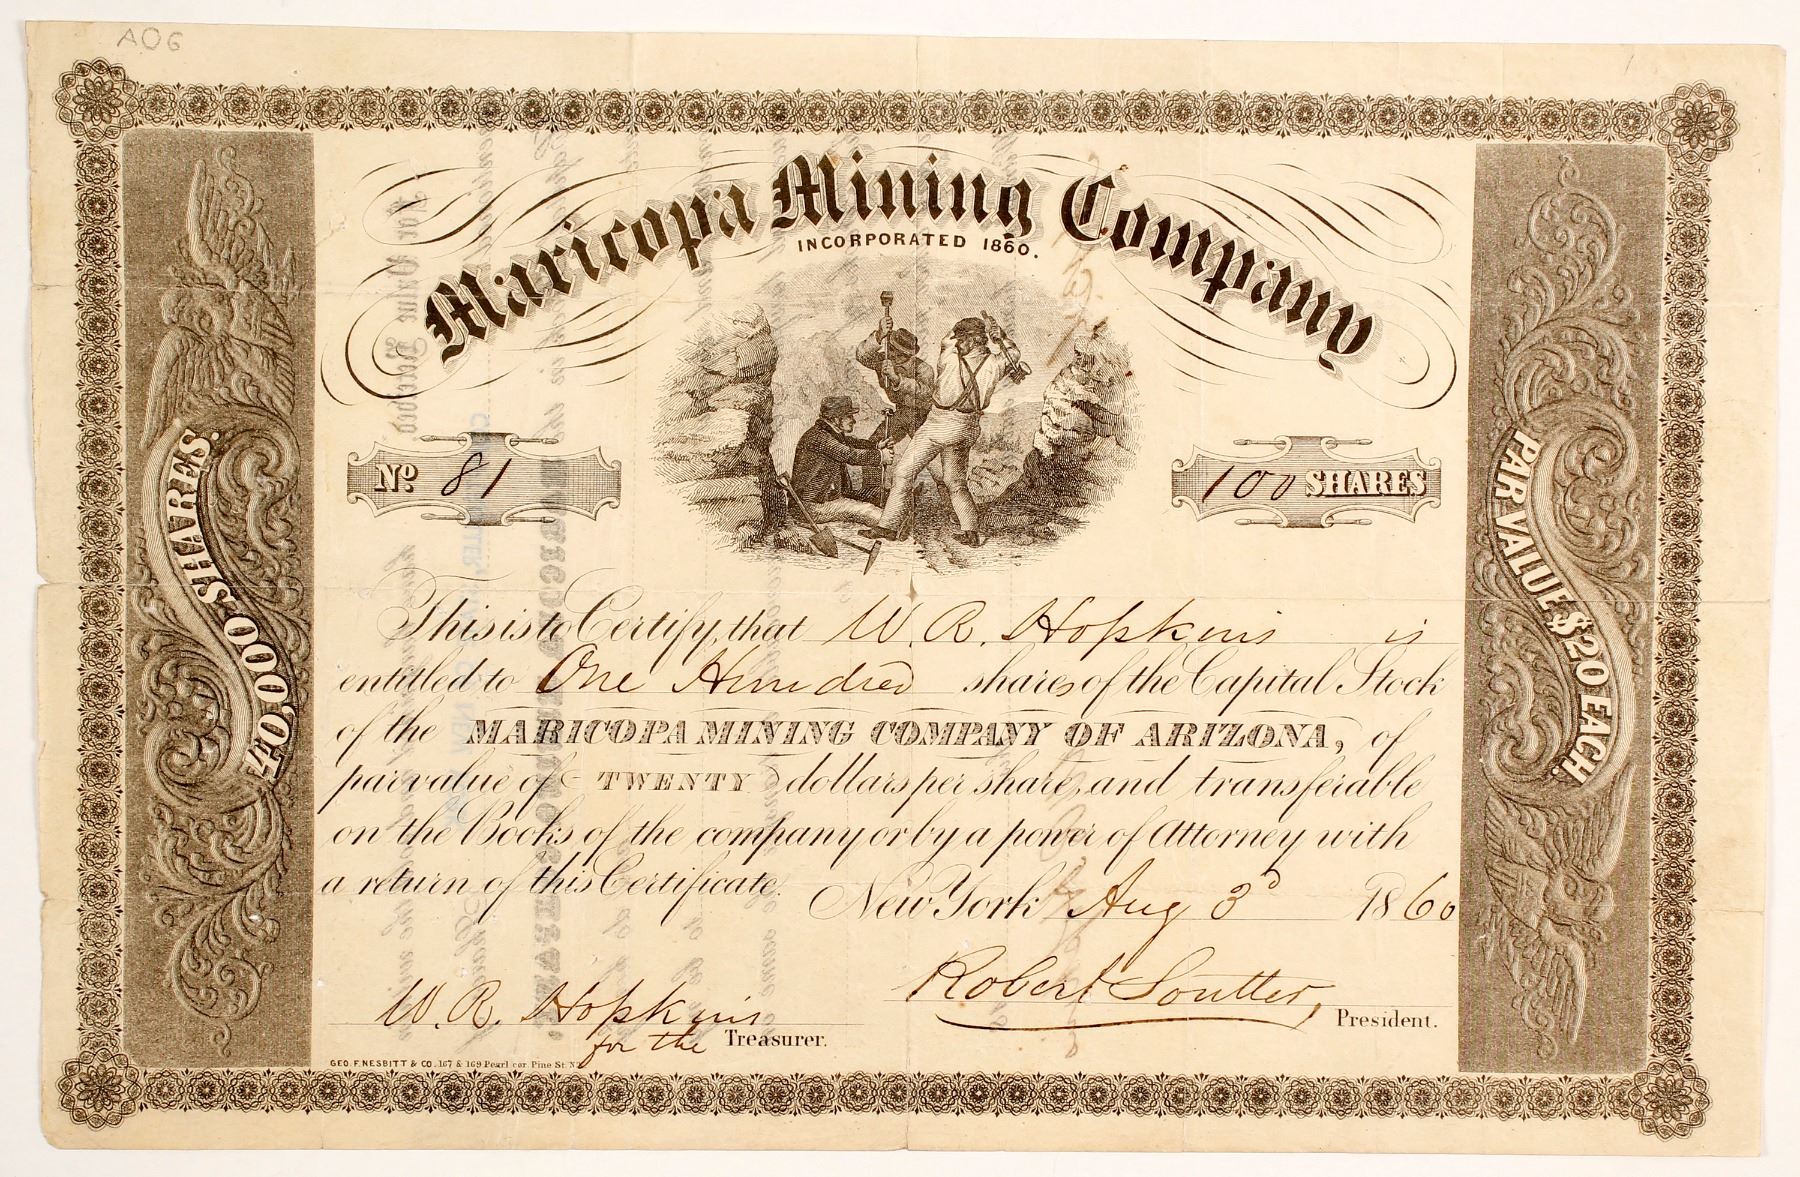 AOG
Maricopa Mining Company
INCORPORATED 1860.
No. 81
100 SHARES
40,000 SHARES.
PAR VALUE $20 EACH.
This is to Certify, that W. R. Hopkins is
entitled to One Hundred shares of the Capital Stock
of the MARICOPA MINING COMPANY OF ARIZONA, of
par value of TWENTY dollars per share, and transferable
on the Books of the company or by a power of Attorney with
a return of this Certificate.
New York Aug 3d 1860
W. R. Hopkins
for the Treasurer.
Robert Soutter, President.
GEO. F. NESBITT & CO. 167 & 169 Pearl cor Pine St. N.Y.